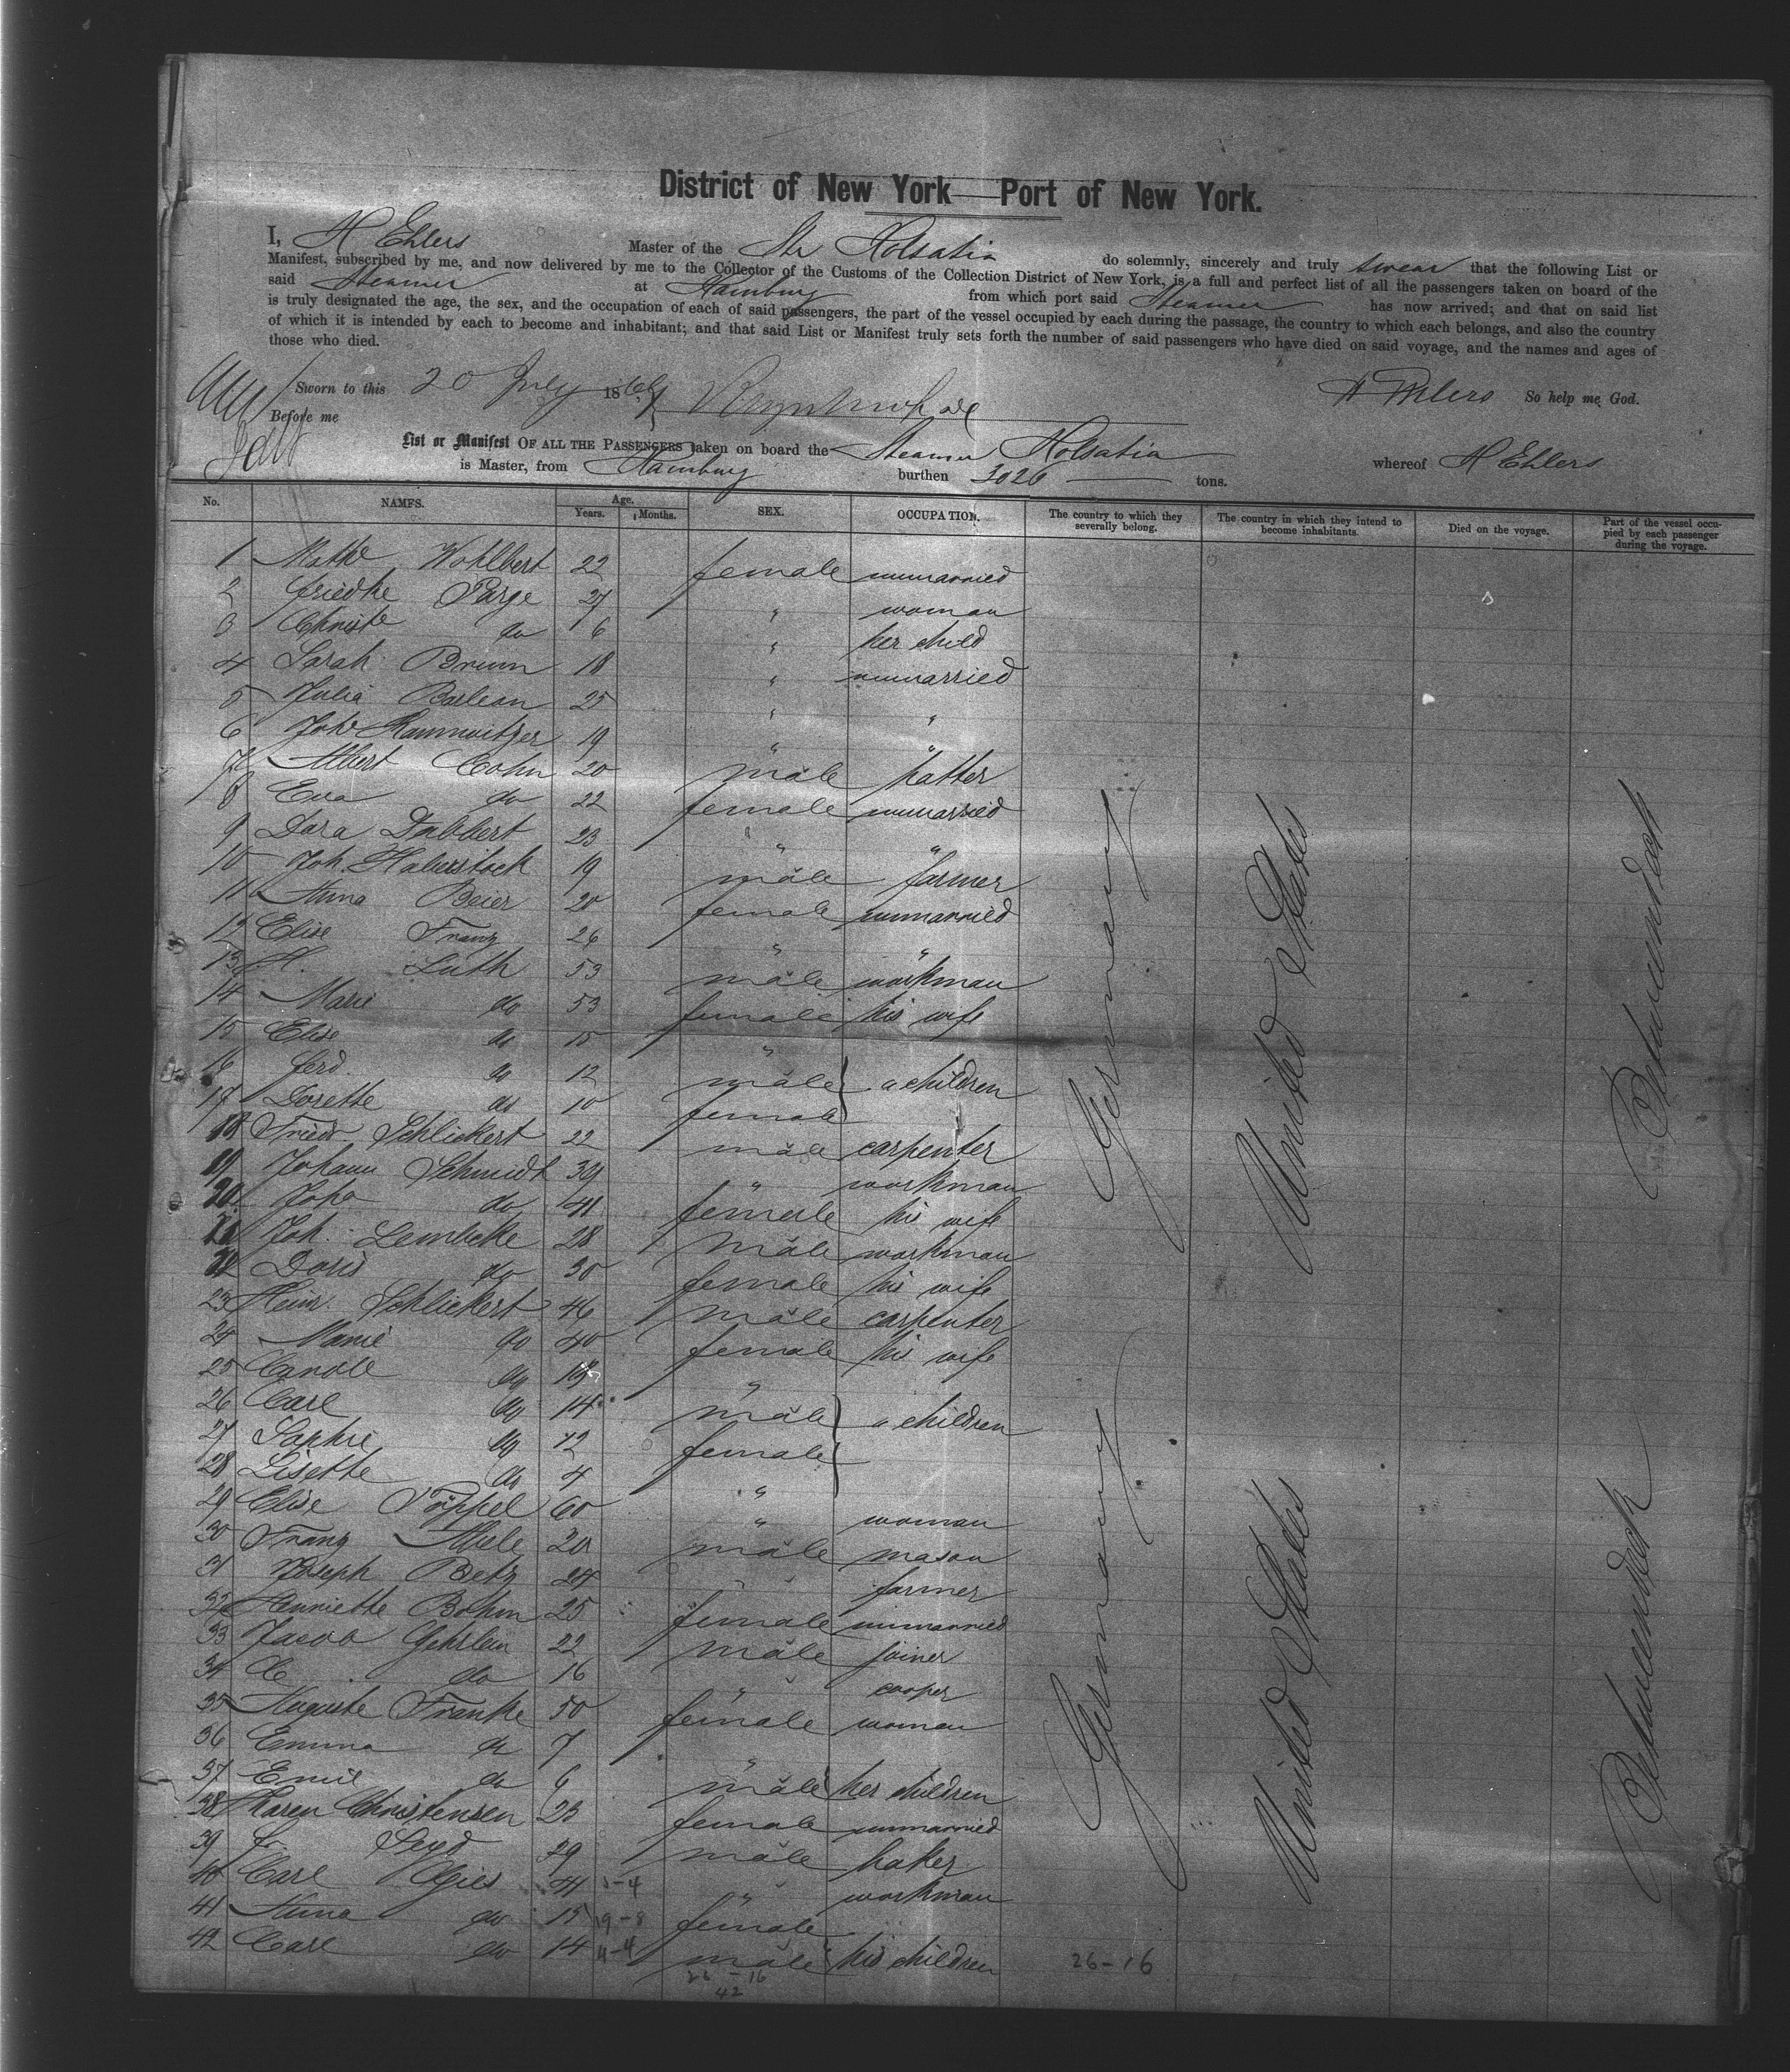 District of New York—Port of New York.
I, H Ehlers Master of the Str Holsatia do solemnly, sincerely and truly swear that the following List or
Manifest, subscribed by me, and now delivered by me to the Collector of the Customs of the Collection District of New York, is a full and perfect list of all the passengers taken on board of the
said Steamer at Hamburg from which port said Steamer has now arrived; and that on said list
is truly designated the age, the sex, and the occupation of each of said passengers, the part of the vessel occupied by each during the passage, the country to which each belongs, and also the country
of which it is intended by each to become and inhabitant; and that said List or Manifest truly sets forth the number of said passengers who have died on said voyage, and the names and ages of
those who died.
Sworn to this 20 July 1869 H Ehlers So help me God.
Before me
List or Manifest OF ALL THE PASSENGERS taken on board the Steamer Holsatia whereof H Ehlers
is Master, from Hamburg burthen 3026 tons.
No. NAMES. Age. Years. Months. SEX. OCCUPATION. The country to which they severally belong. The country in which they intend to become inhabitants. Died on the voyage. Part of the vessel occupied by each passenger during the voyage.
1 Mathe Wohlbert 22 female unmarried
2 Friedke Parge 27 " woman
3 Christe do 6 " her child
4 Sarah Brumm 18 " unmarried
5 Julia Barlean 25 " "
6 Johe Hammitzer 19 " "
7 Albert Cohn 20 male hatter
8 Eva do 22 female unmarried
9 Dora Dabbert 23 " "
10 Joh. Haberstock 19 male farmer
11 Anna Beier 20 female unmarried
12 Elise Franz 26 " "
13 H. Luth 53 male workman
14 Marie do 53 female his wife
15 Elise do 15 "
16 Ferd. do 12 male " children
17 Dorette do 10 female
18 Friedr. Schlickert 22 male carpenter
19 Johann Schmidt 39 " workman
20 Joha do 41 female his wife
21 Joh. Lembcke 28 male workman
22 Doris do 30 female his wife
23 Heinr. Schlickert 46 male carpenter
24 Marie do 40 female his wife
25 Carole do "
26 Carl do 14 male " children
27 Sophie do 12 female
28 Lisette do 4 "
29 Elise Töppel 60 " woman
30 Franz Abele 20 male mason
31 Joseph Betz 24 " farmer
32 Henriette Bohm 25 female unmarried
33 Jacob Gehrlein 22 male joiner
34 C do 16 " cooper
35 Auguste Franke 50 female woman
36 Emma do 7 "
37 Emil do 6 male her children
38 Karen Christensen 23 female unmarried
39 Seyd 29 male baker
40 Carl Gies 41 " workman
41 Anna do 15 female
42 Carl do 14 male his children
26-16
26-16
42
Germany United States Betweendeck
Germany United States Betweendeck